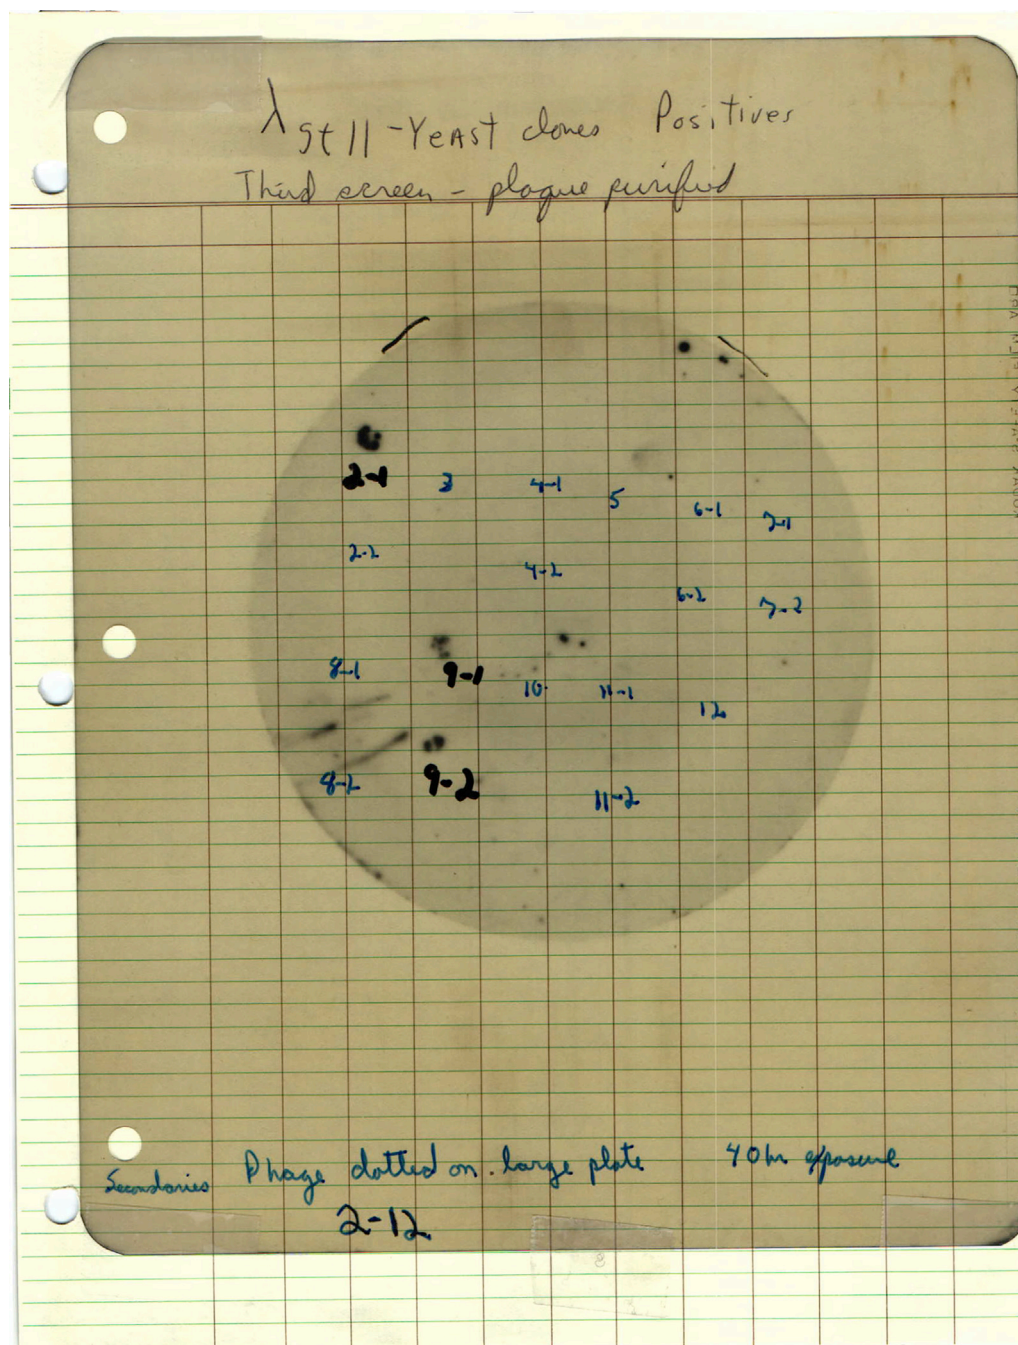 λgt11-Yeast clones Positives
Third screen - plaque purified
2-1 3 4-1 5 6-1 7-1
2-2 4-2 6-2 7-2
8-1 9-1 10 11-1 12
8-2 9-2 11-2
Secondaries Phage dotted on large plate 40 hr exposure
2-12
8